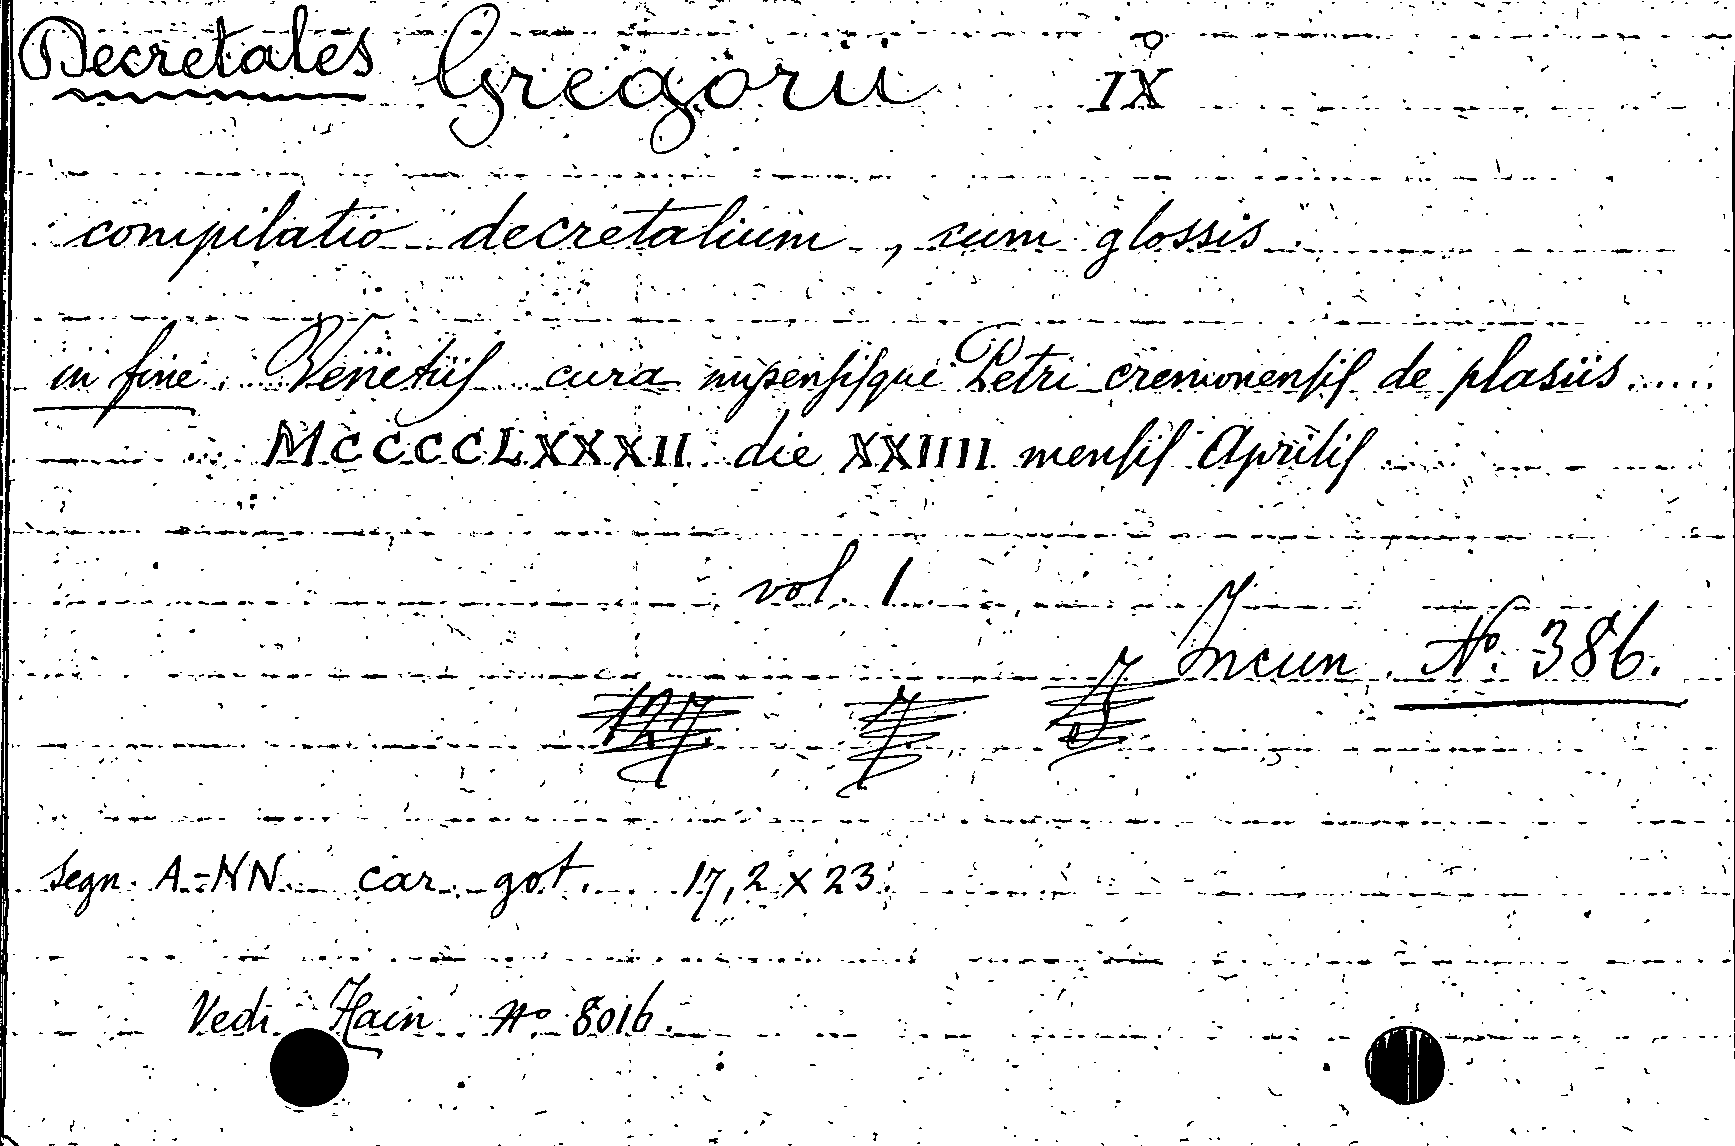 Decretales Gregorii IX
compilatio decretalium, cum glossis
in fine Venetiis cura impensisque Petri cremonensis de plasiis.....
MCCCCLXXXII die XXIIII mensis Aprilis
vol. 1
Incun. No. 386.
127. 7.
segn. A-NN. car. got. 17,2 x 23.
Vedi Hain No 8016.